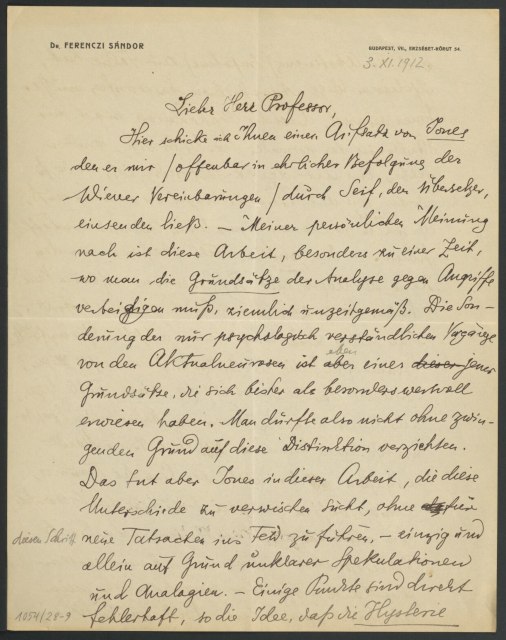 DR. FERENCZI SÁNDOR
BUDAPEST, VII., ERZSÉBET-KÖRUT 54.
3. XI. 1912.
Lieber Herr Professor,
Hier schicke ich Ihnen einen Aufsatz von Jones
den er mir / offenbar in ehrlicher Befolgung der
Wiener Vereinbarungen / durch Seif, den Übersetzer,
einsenden ließ. – Meiner persönlichen Meinung
nach ist diese Arbeit, besonders zu einer Zeit,
wo man die Grundsätze der Analyse gegen Angriffe
verteidigen muß, ziemlich unzeitgemäß. Die Son-
derung der nur psychologisch verständlichen Vorgänge
von den Aktualneurosen ist aber eben einer dieser jener
Grundsätze, die sich bisher als besonders wertvoll
erwiesen haben. Man dürfte also nicht ohne zwin-
genden Grund auf diese Distinktion verzichten.
Das tut aber Jones in dieser Arbeit, die diese
Unterschiede zu verwischen sucht, ohne dafür
neue Tatsachen ins Feld zu führen, – einzig und
allein auf Grund unklarer Spekulationen
und Analogien. – Einige Punkte sind direkt
fehlerhaft, so die Idee, daß die Hysterie
diesen Schritt
1054/28-9